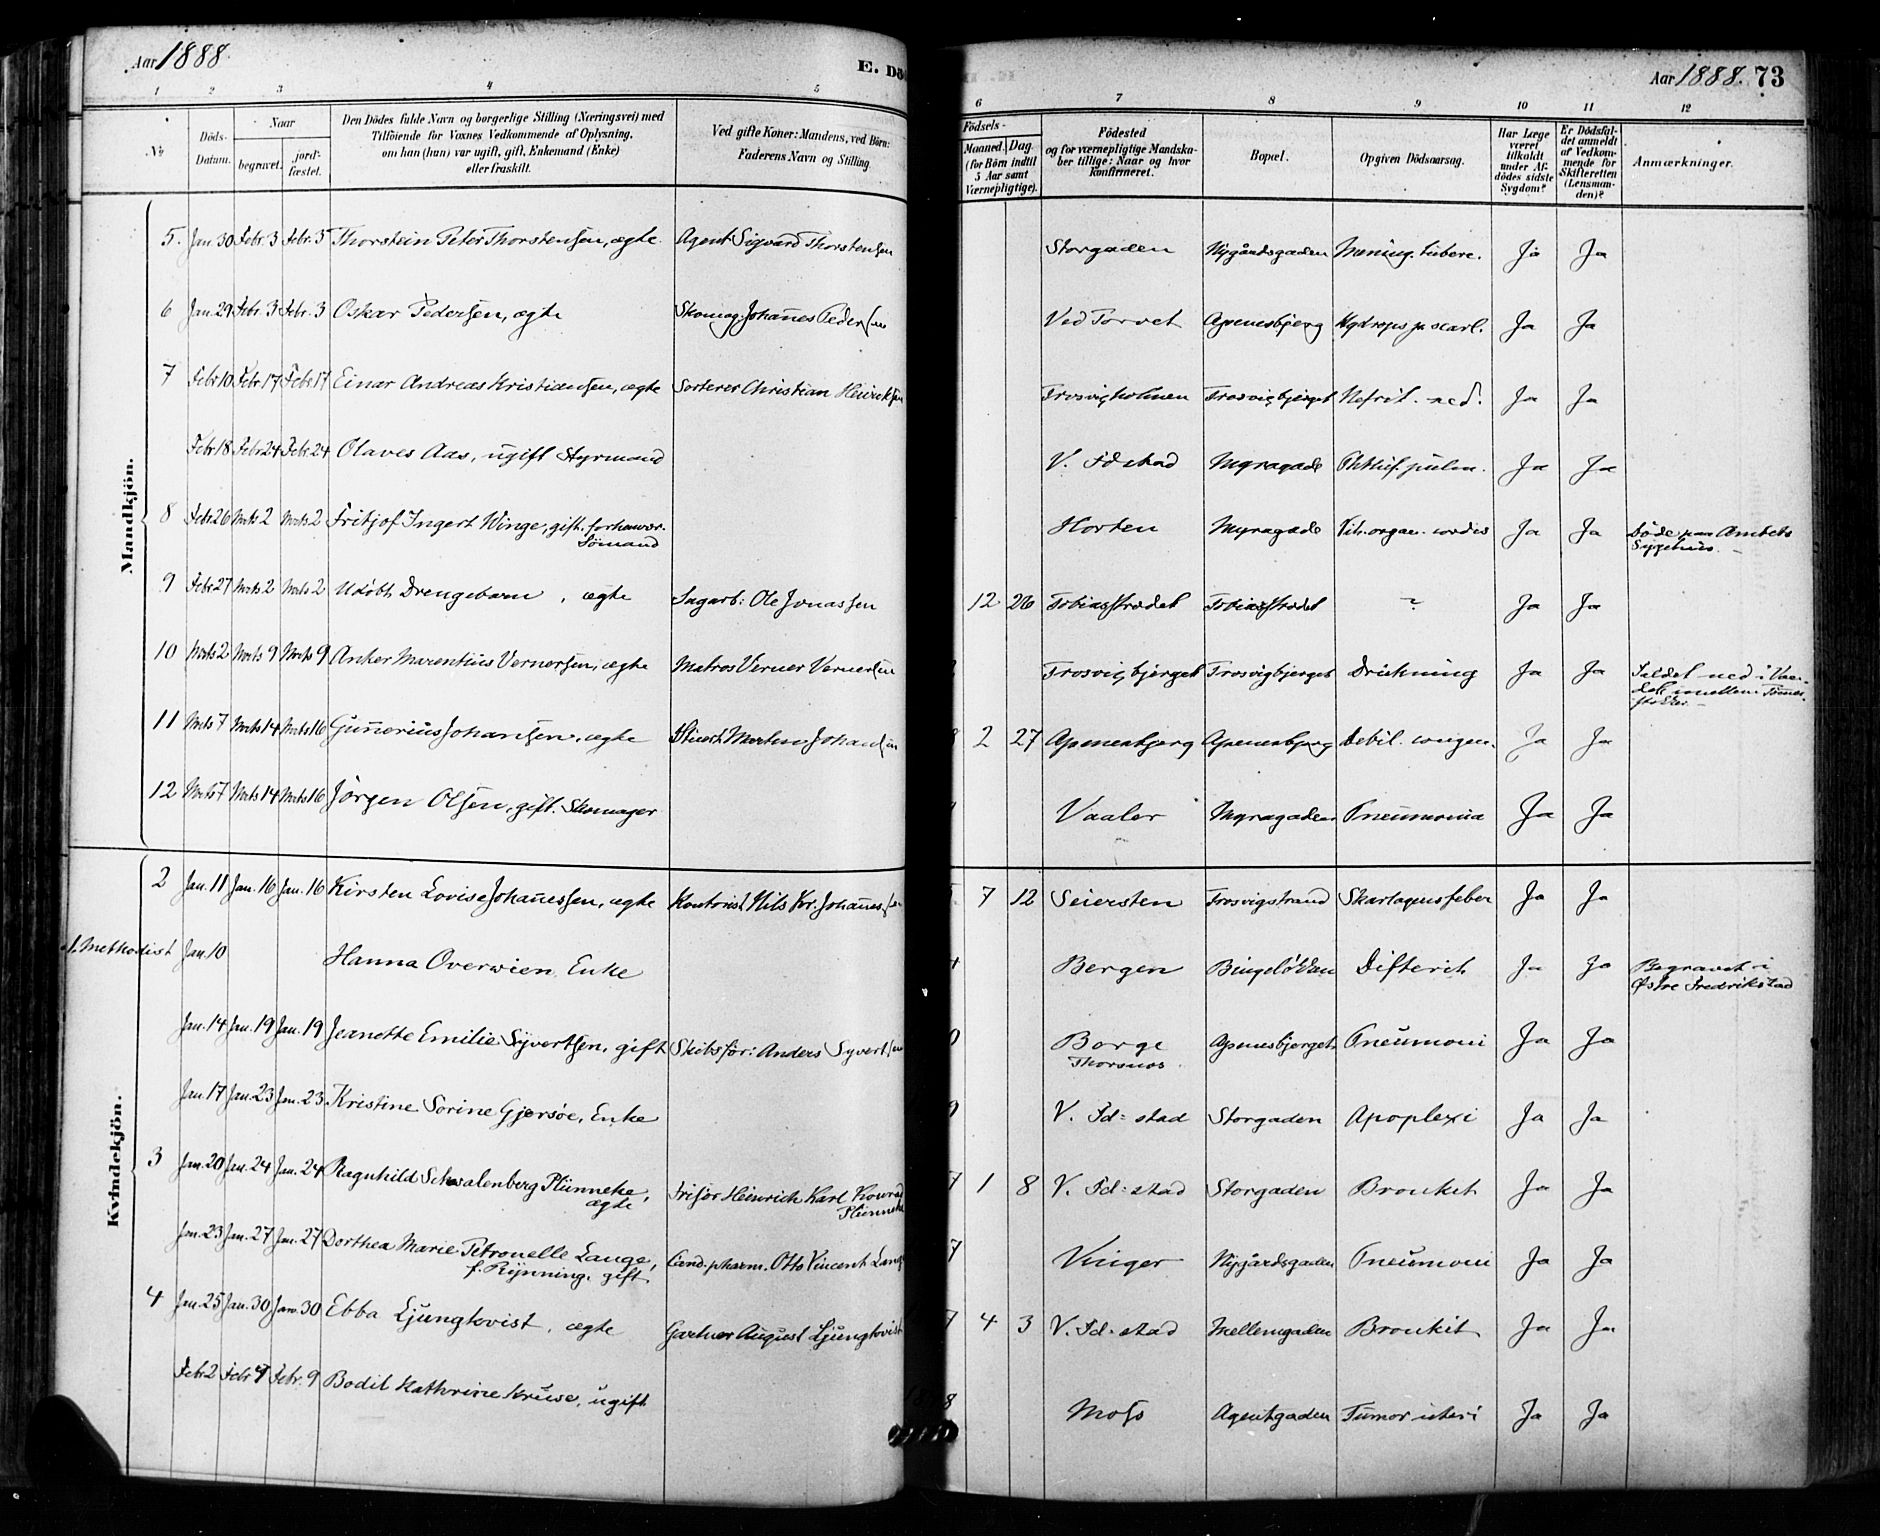 Aar 1888.
E. Dö
1 2 3 4 5
No
Döds-
Datum.
Naar
begravet.
jord-
fæstet.
Den Dödes fulde Navn og borgerlige Stilling (Næringsvei) med
Tilföiende for Voxnes Vedkommende af Oplysning,
om han (hun) var ugift, gift, Enkemand (Enke)
eller fraskilt.
Ved gifte Koner: Mandens, ved Börn:
Faderens Navn og Stilling.
Mandkjön.
5. Jan. 30 Febr. 3 Febr. 3 Thorstein Peter Thorstensen, ægte. Agent Sigvard Thorstensen
6 Jan. 29 Febr. 3 Febr. 3 Oskar Pedersen, ægte Skomag. Johañes Pedersen
7 Febr. 10 Febr. 17 Febr. 17 Einar Andreas Kristiansen, ægte Sorterer Christian Heinriksen
Febr. 18 Febr. 24 Febr. 24 Olaves Aas, ugift Styrmand
8 Febr. 26 Mrts 2 Mrts 2 Fritjof Ingert Winge, gift. forhenvær.
Sömand
9 Febr. 27 Mrts 2 Mrts 2 Udöbt Drengebarn, ægte Sagarb: Ole Jonassen
10 Mrts 2 Mrts 9 Mrts 9 Anker Marentius Vernersen, ægte Matros Verner Vernersen
11 Mrts 7 Mrts 14 Mrts 16 Guñerius Johansen, ægte Stuert Morten Johansen
12 Mrts 7 Mrts 14 Mrts 16 Jörgen Olsen, gift. Skomager
Kvindekjön.
2 Jan. 11 Jan. 16 Jan. 16 Kirsten Lovise Johañessen, ægte Kontorist Nils Kr. Johañessen
1. Methodist Jan. 10 Hanna Overwien, Enke
Jan. 14 Jan. 19 Jan. 19 Jeanette Emilie Syvertsen, gift Skibsför: Anders Syvertsen
Jan. 17 Jan. 23 Jan. 23 Kristine Sorine Gjersöe, Enke
3 Jan. 20 Jan. 24 Jan. 24 Ragnhild Schwalenberg Plünneke,
ægte
Frisör Heinrich Karl Konrad
Plünneke
Jan. 23 Jan. 27 Jan. 27 Dorthea Marie Petronelle Lange,
f. Rynning, gift
Cand. pharm. Otto Vincent Lange
4 Jan. 25 Jan. 30 Jan. 30 Ebba Ljungkvist, ægte Gartner August Ljungkvist
Febr. 2 Febr. 9 Febr. 9 Bodil Kathrine Kruse, ugift
Aar 1888. 73
6 7 8 9 10 11 12
Födsels-
Maaned. Dag.
(for Börn indtil
5 Aar samt
Værnepligtige).
Födested
og for værnepligtige Mandska-
ber tillige: Naar og hvor
Konfirmeret.
Bopæl.
Opgiven Dödsaarsag.
Har Læge
været
tilkaldt
under Af-
dödes sidste
Sygdom?
Er Dödsfal-
det anmeldt
af Vedkom-
mende for
Skifteretten
(Lensman-
den)?
Anmærkninger.
Storgaden Nygårdsgaden Mening. tuberc. Ja Ja
Ved Torvet Apenesbjerg Hydrops p. scarl. Ja Ja
Trosvigholmen Trosvigbjerget Nefrit. Ja Ja
V. Fdstad Myragade Phthis. pulm. Ja Ja
Horten Myragade Vit. organ. cordis Ja Ja Döde paa Amtets
Sygehus.
12 26 Tobiasstrædet Tobiasstrædet ? Ja Ja
Trosvigbjerget Trosvigbjerget Drukning Ja Ja Faldet ned i Van-
det imellem Tömmer-
stokker.
2 27 Apenesbjerg Apenesbjerg Debil. congen. Ja Ja
Vaaler Myragaden Pneumonia Ja Ja
7 12 Seiersten Trosvigstrand Skarlagensfeber Ja Ja
Bergen Bingelökken Difterit Ja Ja Begravet i
Østre Fredrikstad
Borge
Thorsnes.
Apenesbjerget Pneumoni Ja Ja
V. Fd=stad Storgaden Apoplexi Ja Ja
7 1 8 V. Fd=stad Storgaden Bronkit Ja Ja
7 Vinger Nygårdsgaden Pneumoni Ja Ja
7 4 3 V. Fd=stad Mellemgaden Bronkit Ja Ja
8 Moss Agentgaden Tumor uteri Ja Ja